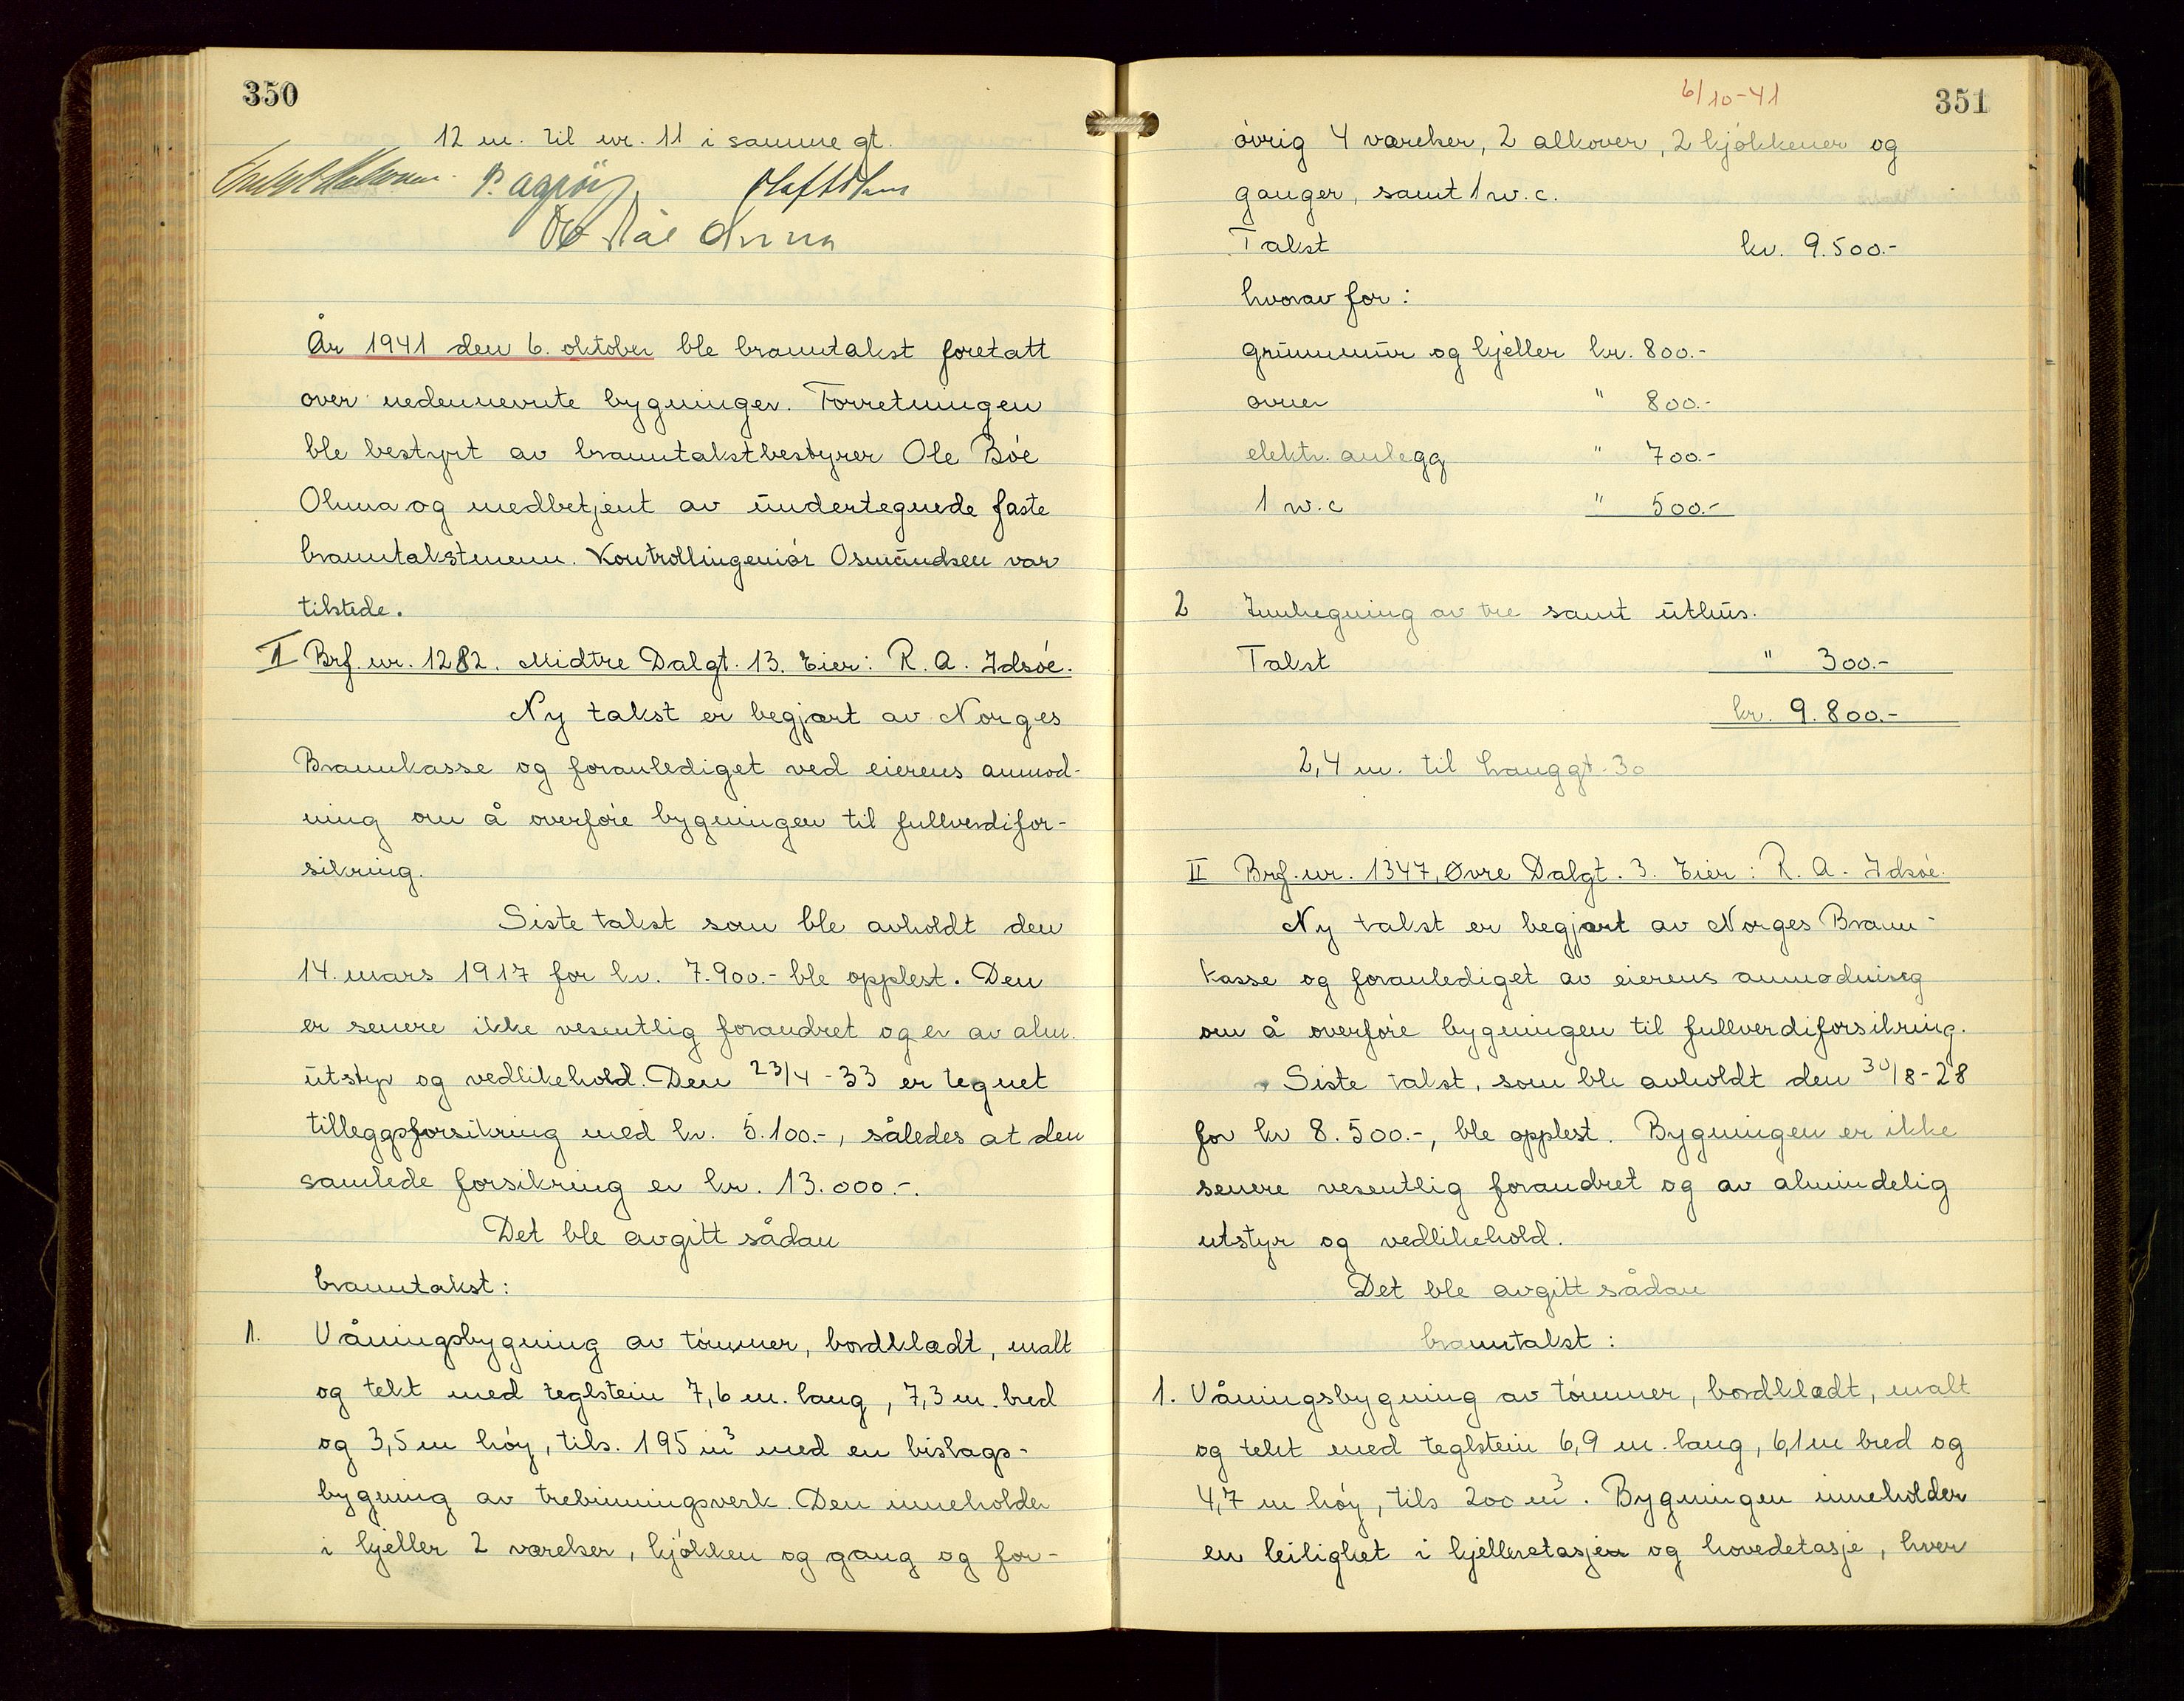 350
12 m. til nr. 11 i samme gt.
År 1941 den 6. oktober ble branntakst foretatt
over nedennevnte bygninger. Forretningen
ble bestyrt av branntakstbestyrer Ole Böe
Olnna og medbetjent av undertegnede faste
branntakstmenn. Kontrollingeniör Osmundsen var
tilstede.
II Brf. nr. 1282. Midtre Dalgt. 13. Eier: R. A. Idsöe.
Ny takst er begjært av Norges
Brannkasse og foranlediget ved eierens anmod-
ning om å overföre bygningen til fullverdifor-
sikring.
Siste takst som ble avholdt den
14. mars 1917 for kr. 7.900.- ble opplest. Den
er senere ikke vesentlig forandret og er av alm.
utstyr og vedlikehold. Den 23/4 - 33 er tegnet
tilleggsforsikring med kr. 5.100.-, således at den
samlede forsikring er kr. 13.000.-.
Det ble avgitt sådan
branntakst:
1. Våningsbygning av tömmer, bordklædt, malt
og tekt med teglstein 7,6 m. lang, 7,3 m. bred
og 3,5 m höy, tils. 195 m³ med en bislags-
bygning av trebinningsverk. Den inneholder
i kjeller 2 værelser, kjökken og gang og for-
6/10-41
351
övrig 4 værelser, 2 alkover, 2 kjökkener og
ganger, samt 1 w.c.
Takst kr. 9.500.-
hvorav for:
grunnmur og kjeller kr. 800.-
ovner " 800.-
elektr. anlegg " 700.-
1 w.c " 500.-
2 Innhegning av tre samt uthus.
Takst " 300.-
kr. 9.800.-
2,4 m. til Hauggt. 30
II Brf. nr. 1347, Øvre Dalgt. 3. Eier: R. A. Idsöe.
Ny takst er begjært av Norges Brann-
kasse og foranlediget av eierens anmodning
om å overföre bygningen til fullverdiforsikring.
Siste takst, som ble avholdt den 30/8-28
for kr 8.500.-, ble opplest. Bygningen er ikke
senere vesentlig forandret og av almindelig
utstyr og vedlikehold.
Det ble avgitt sådan
branntakst:
1. Våningsbygning av tömmer, bordklædt, malt
og tekt med teglstein 6,9 m. lang, 6,1 m bred og
4,7 m höy, tils 200 m³. Bygningen inneholder
en leilighet i kjelleretasjen og hovedetasje, hver